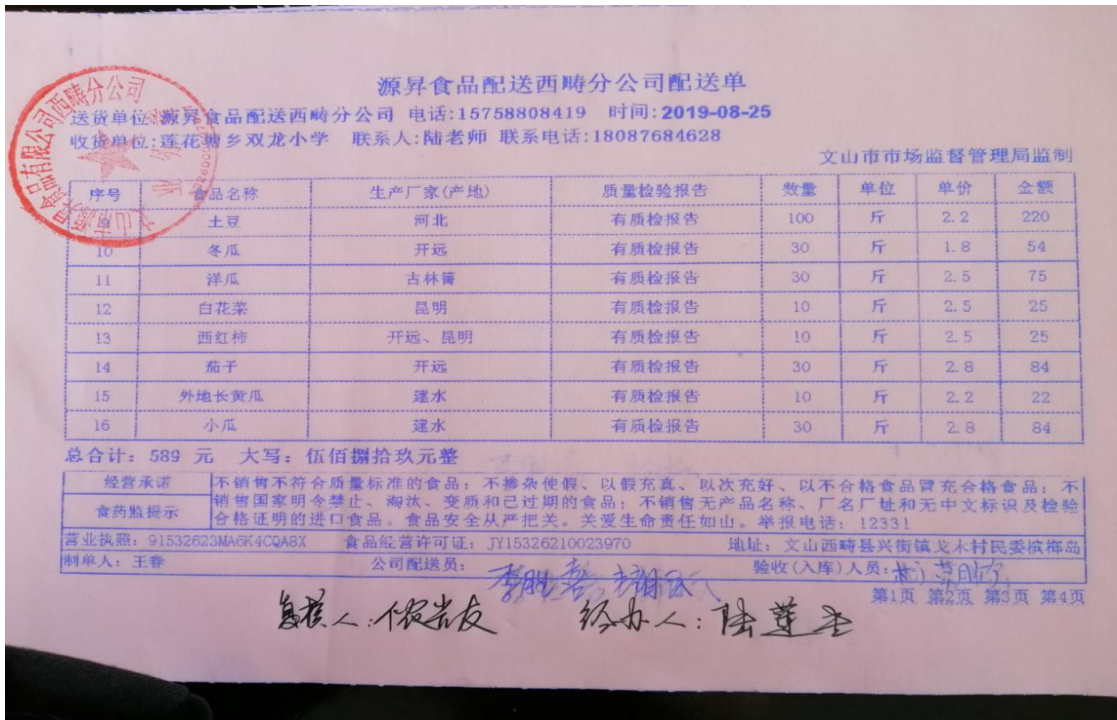 源昇食品配送西畴分公司配送单
送货单位:源昇食品配送西畴分公司 电话:15758808419 时间:2019-08-25
收货单位:莲花塘乡双龙小学 联系人:陆老师 联系电话:18087684628
文山市市场监督管理局监制
序号 食品名称 生产厂家(产地) 质量检验报告 数量 单位 单价 金额
9 土豆 河北 有质检报告 100 斤 2.2 220
10 冬瓜 开远 有质检报告 30 斤 1.8 54
11 洋瓜 古林箐 有质检报告 30 斤 2.5 75
12 白花菜 昆明 有质检报告 10 斤 2.5 25
13 西红柿 开远、昆明 有质检报告 10 斤 2.5 25
14 茄子 开远 有质检报告 30 斤 2.8 84
15 外地长黄瓜 建水 有质检报告 10 斤 2.2 22
16 小瓜 建水 有质检报告 30 斤 2.8 84
总合计: 589 元 大写: 伍佰捌拾玖元整
经营承诺 不销售不符合质量标准的食品; 不掺杂使假、以假充真、以次充好、以不合格食品冒充合格食品; 不
食药监提示 销售国家明令禁止、淘汰、变质和已过期的食品; 不销售无产品名称、厂名厂址和无中文标识及检验
合格证明的进口食品。食品安全从严把关。关爱生命责任如山。举报电话: 12331
营业执照: 91532623MA6K4CQA8X 食品经营许可证: JY15326210023970 地址: 文山西畴县兴街镇戈木村民委槟榔岛
制单人: 王春 公司配送员: 验收(入库)人员:
第1页 第2页 第3页 第4页
复核人:侬岩友 经办人:陆莲圭